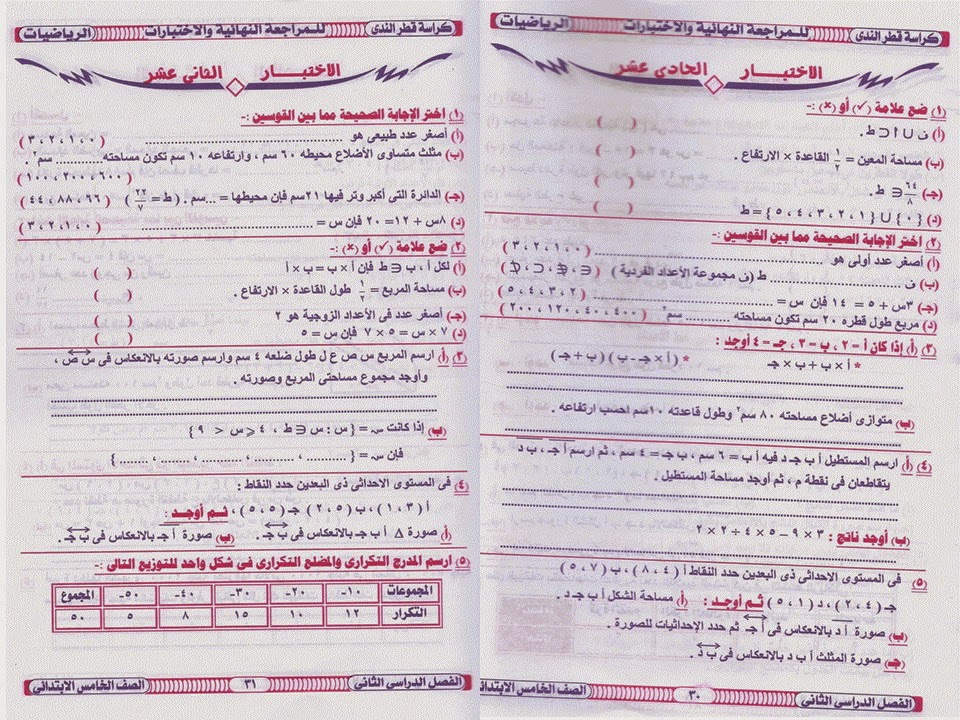 كراسة قطر الندى للمراجعة النهائية والاختبارات الرياضيات
الاختبار الحادى عشر
(١) ضع علامة (✓) أو (×) :-
(أ) ف ∪ أ ⊂ ط . ( )
(ب) مساحة المعين = ١/٢ القاعدة × الارتفاع . ( )
(جـ) ٦٤/٨ ∈ ط . ( )
(د) {٠} ∪ {١ ، ٢ ، ٣ ، ٤ ، ٥} = ط ( )
(٢) اختر الإجابة الصحيحة مما بين القوسين :-
(أ) أصغر عدد أولى هو ........ (٠ ، ١ ، ٢ ، ٣)
(ب) ف ........ ط (ف مجموعة الأعداد الفردية) (∈ ، ∉ ، ⊂ ، ⊄)
(جـ) ٣س + ٥ = ١٤ فإن س = ........ (٢ ، ٣ ، ٤ ، ٥)
(د) مربع طول قطره ٢٠ سم تكون مساحته ........ سم٢ (٤٠٠ ، ٤٠ ، ١٢٠ ، ٢٠٠)
(٣) (أ) إذا كان أ = ٢ ، ب = ٣ ، جـ = ٤ أوجد :
* أ × ب + ب × جـ * (أ × جـ - ب) (ب + جـ)
(ب) متوازى أضلاع مساحته ٨٠ سم٢ وطول قاعدته ١٠سم احسب ارتفاعه .
(٤) (أ) ارسم المستطيل أ ب جـ د فيه أ ب = ٦ سم ، ب جـ = ٤ سم ، ثم ارسم أ جـ ، ب د
يتقاطعان فى نقطة م ، ثم أوجد مساحة المستطيل .
(ب) أوجد ناتج : ٣ × ٩ - ٥ × ٤ ÷ ٢ × ٢
(٥) فى المستوى الاحداثى ذى البعدين حدد النقاط أ (٤ ، ٨) ، ب (٧ ، ٥)
جـ (٤ ، ٢) ، د (١ ، ٥) ثم أوجد : (أ) مساحة الشكل أ ب جـ د .
(ب) صورة أ د بالانعكاس فى أ جـ ثم حدد الإحداثيات للصورة .
(جـ) صورة المثلث أ ب د بالانعكاس فى ب د .
الفصل الدراسى الثانى ٣٠ الصف الخامس الابتدائى
كراسة قطر الندى للمراجعة النهائية والاختبارات الرياضيات
الاختبار الثانى عشر
(١) اختر الإجابة الصحيحة مما بين القوسين :-
(أ) أصغر عدد طبيعى هو ........ (٠ ، ١ ، ٢ ، ٣)
(ب) مثلث متساوى الأضلاع محيطه ٦٠ سم ، وارتفاعه ١٠ سم تكون مساحته ........ سم٢ .
(جـ) الدائرة التى أكبر وتر فيها ٢١سم فإن محيطها = ....سم . (ط = ٢٢/٧) (٦٦ ، ٨٨ ، ٤٤
(د) ٨س + ١٢ = ٢٠ فإن س = ........ (٠ ، ١ ، ٢ ، ٣)
(٢) ضع علامة (✓) أو (×) :-
(أ) لكل أ ، ب ∈ ط فإن أ × ب = ب × أ ( )
(ب) مساحة المربع = ١/٢ طول القاعدة × الارتفاع . ( )
(جـ) أصغر عدد فى الأعداد الزوجية هو ٢ ( )
(د) ٧ × س = ٥ × ٧ فإن س = ٥ ( )
(٣) (أ) ارسم المربع س ص ع ل طول ضلعه ٤ سم وارسم صورته بالانعكاس فى س ص ،
وأوجد مجموع مساحتى المربع وصورته .
(ب) إذا كانت س = {س : س ∈ ط ، ٤ ⩽ س < ٩}
فإن س = {........ ، ........ ، ........ ، ........ ، ........}
(٤) فى المستوى الاحداثى ذى البعدين حدد النقاط :
أ (٣ ، ١) ، ب (٥ ، ٢) جـ (٥ ، ٥) ، ثم أوجد :
(أ) صورة △ أ ب جـ بالانعكاس فى ب جـ . (ب) صورة أ ب بالانعكاس فى ب جـ .
(٥) ارسم المدرج التكرارى والمضلع التكرارى فى شكل واحد للتوزيع التالى :-
المجموعات ١٠- ٢٠- ٣٠- ٤٠- ٥٠- المجموع
التكرار ١٢ ١٠ ١٥ ٨ ٥ ٥٠
الفصل الدراسى الثانى ٣١ الصف الخامس الابتدائى